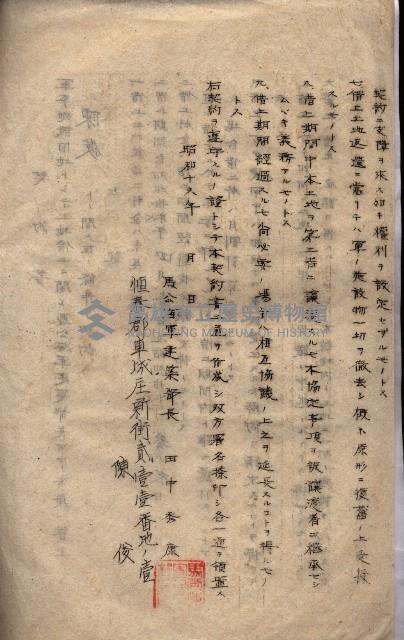 契約ニ支障ヲ来ス如キ權利ヲ設定セザルモノトス
七、借上土地返還ニ當リテハ軍ノ施設物一切ヲ撤去シ概ネ原形ニ復舊ノ上受授
スルモノトス
八、借上期間中本土地ヲ第三者ニ譲渡スルモ本協定事項ヲ被譲渡者ニ継承セシ
ムベキ義務アルモノトス
九、借上期間経過スルモ尚必要ノ場合ハ相互協議ノ上之ヲ延長スルコトヲ得ルモノ
トス
右契約ヲ遵守スルノ證トシテ本契約書二通ヲ作成シ双方署名捺印シ各一通ヲ領置ス
昭和十八年 月 日
馬公海軍建築部長 田中秀康
恒春郡車城庄新街貳壹壹番地ノ壹
陳俊
高雄市立歷史博物館
KAOHSIUNG MUSEUM OF HISTORY